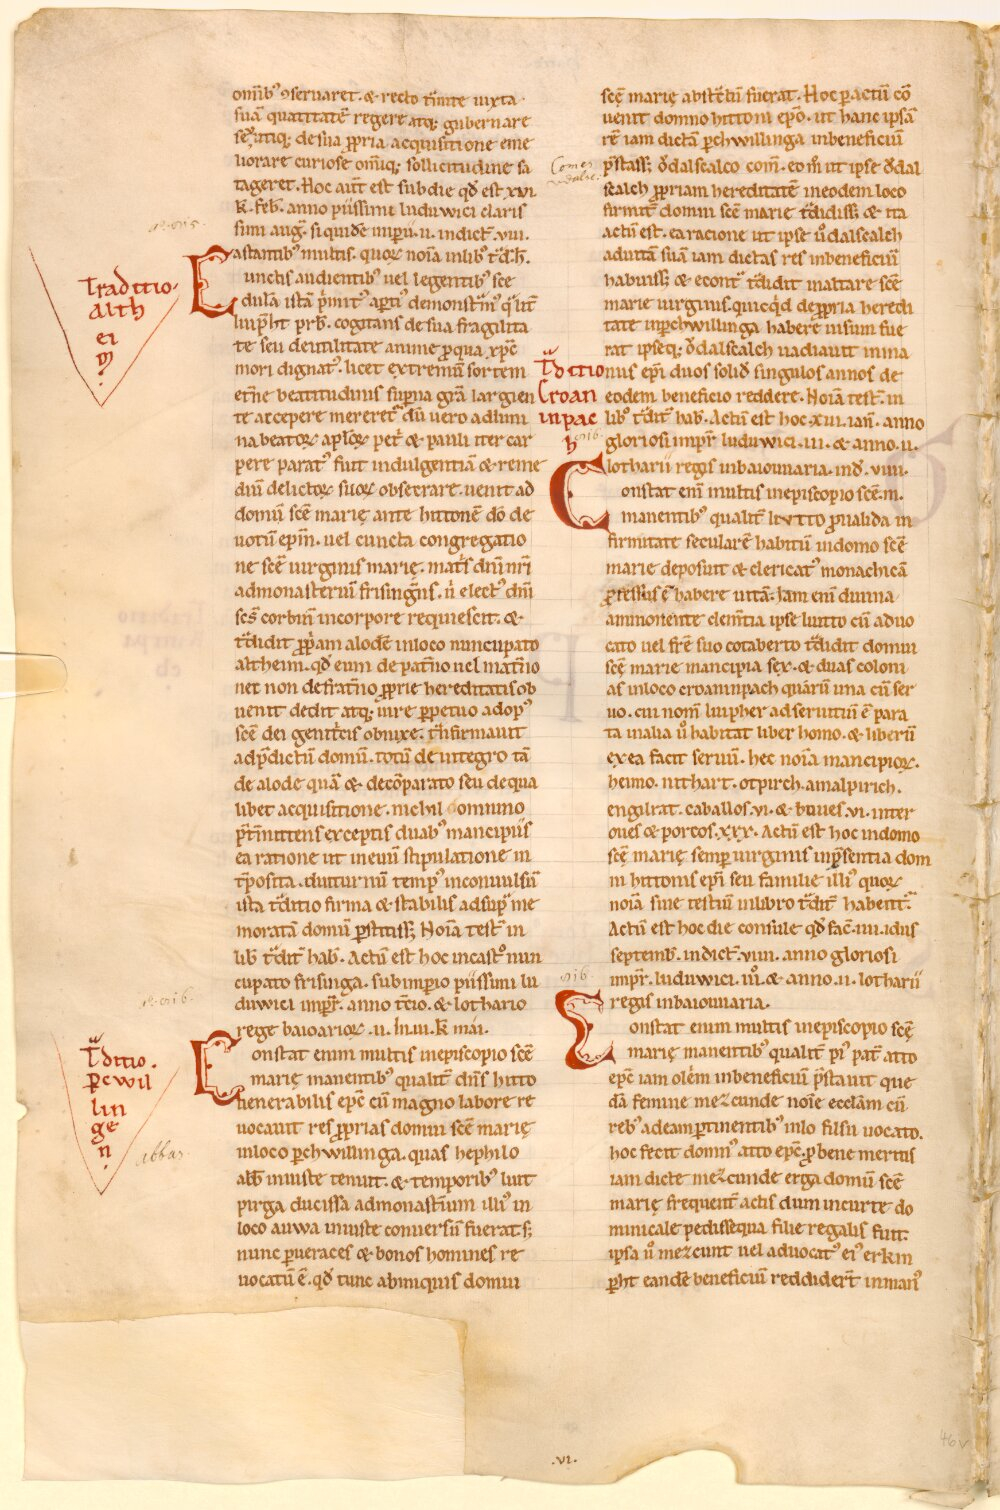 omibꝰ ꝯseruaret. & recto tr̄mite iuxta
suā quātitatē regere atq; gubernare
se utiq; de sua ꝓpria acquisitione eme
liorare curiose om̄iq; sollicitudine sa
tageret. Hoc aūt est sub die qd̄ est xvi
k. feb̄. anno piissimi luduwici claris
simi auḡ. siquidē imperii. ii. indict̄. viii.
astantibꝰ multis. quoꝝ noīa in libꝰ t̄d.h̄.
Traditio.
alth
ei
m̄
Cunctis audientibꝰ uel legentibꝰ sce
dulā istā p̄mit apertꝰ demonstrm̄ qͥlit̄
liup̄ht prb̄. cogitans de sua fragilita
te seu de utilitate anime ꝓ qua xp̄c
mori dignatꝰ. licet extremū sortem
et̄ne beatitudinis supna gr̄a largien
te accepere mereret̄ dū uero ad lumi
na beatoꝝ apl̄oꝝ pet̄ & pauli iter car
pere paratꝰ fiut indulgentiā & reme
diū delictoꝝ suoꝝ obsecrare. uenit ad
domū scē marię ante hittonē dō de
uotū ep̄m. uel cuncta congregatio
ne scē uirginis marię. matris dn̄i nr̄i
ad monasteriū frisinḡns. ū elect̓ dn̄i
scs̄ corbin̄ in corpore requiescit. &
t̄didit ꝓp̄am alodē in loco nuncupato
altheim. qd̄ eum de pat̄no uel mat̄no
nec non de frat̄no ꝓprie hereditatis ob
uenit dedit atq; iure ꝑpetuo ad opꝰ
scē dei genitricis obnixe. ꝯfirmauit
ad p̄dictū domū. totū de integro tā
de alode quā & de cōparato seu de qua
libet acquisitione. nichil omnino
p̄t̄mittens exceptis duabꝰ mancipiis
ea ratione ut in euū stipulatione in
t̄posita. diuturnū tempꝰ inconuulsū
ista t̄ditio firma & stabilis ad sup̄ me
moratā domū ꝑstitiss; Noīa test̄ in
lib̄ t̄dit̄ hab̄. Actū est hoc in castrꝰ nun
cupato frisinga. sub imperio piissimi lu
duwici imp̄r. anno t̄cio. & lothario
rege baioarioꝝ. ii. In. iii. k mai.
T̄ditio.
ꝑcwil
lin
ge
n.
abbas.
Constat enim multis in episcopio scē
marię manentibꝰ qualit̄ dn̄s hitto
uenerabilis ep̄c cū magno labore re
uocauit res ꝓprias domui scē marię
in loco perchwillinga. quas hephilo
abb̄ iniuste tenuit. & temporibꝰ liut
pirga ducissa ad monast̄ium illiꝰ in
loco auwa iniuste conuersū fuerat. s;
nunc ꝑ ueraces & bonos homines re
uocatū ē. qd̄ tunc ab iniquis domui
scē marię abst̄ctū fuerat. Hoc peractū cō
uenit domno hittoni ep̄o. ut hanc ipsā
rē iam dictā perchwillinga in beneficiū
Comes
p̄stass; ōdalscalco com̄. eom̄ ut ipse ōdal
scalch ꝓpriam hereditatē in eodem loco
firmit̄ domui scē marie t̄didiss; & ita
actū est. ea racione ut ipse uōdalscalch
ad uitā suā iam dictas res in beneficiū
habuiss; & econt̄ t̄didit in altare scē
marie uirginis. quicqd̄ de ꝓpria heredi
tate in perchwillinga habere uisum fue
rat ipseq; ōdalscalch uadiauit in ma
T̄ditio
Croan
inpac
h
nus ep̄i duos solid̄ singulos annos de
eodem beneficio reddere. Noīa test̄. in
libꝰ t̄dit̄ hab̄. Actū est hoc. xiii. ian̄. anno
gloriosi imp̄r luduwici. iii. & anno. ii.
lotharii regis in baiouuaria. ind̄. viii.
Constat enī multis in episcopio scē. m̄.
manentibꝰ qualit̄ liutto p̄ualida in
firmitate secularē habitū in domo scē
marie deposuit & clericatꝰ monachicā
ꝓfessus ē habere uitā. Iam enī diuina
ammonente clem̄tia ipse liutto cū aduo
cato uel fr̄e suo cotaberto t̄didit domui
scē marie mancipia sex. & duas coloni
as in loco croaninpach quarū una cū ser
uo. cui nom̄ liupher ad seruitiū ē para
ta in alia ū habitat liber homo. & liberū
ex ea facit seruiū. hec noīa mancipioꝝ.
heimo. nithart. otpirch. amalpirich.
engilrat. caballos. vi. & boues. vi. inter
oues & porcos. xxx. Actū est hoc in domo
scē marię semꝑ uirginis in p̄sentia dom
ni hittonis ep̄i seu familie illiꝰ quoꝝ
noīa siue testiū in libro t̄dit̄ habent̄.
Actū est hoc die consule qd̄ fac̄. iiii. idus
septemb̄. indict̄. viii. anno gloriosi
imp̄r. luduwici. iii. & anno. ii. lotharii
regis in baiouuaria.
Constat enim multis in episcopio scē
marię manentibꝰ qualit̄ piꝰ pat̄ atto
ep̄c iam olim in beneficiū p̄stauit que
dā femine mezcunde noīe ecclam̄ cū
rebꝰ ad eam ꝑtinentibꝰ in lo filsu uocato.
hoc fecit domnꝰ atto ep̄c ꝓ bene meritis
iam dicte mezcunde erga domū scē
marię frequent̄ actis dum in curte do
minicale pedissequa filie regalis fuit.
ipsa ū mezcunt uel aduocatꝰ eiꝰ erkin
p̄ht eandē beneficiū reddider̄t in manꝰ
.vi.
46v